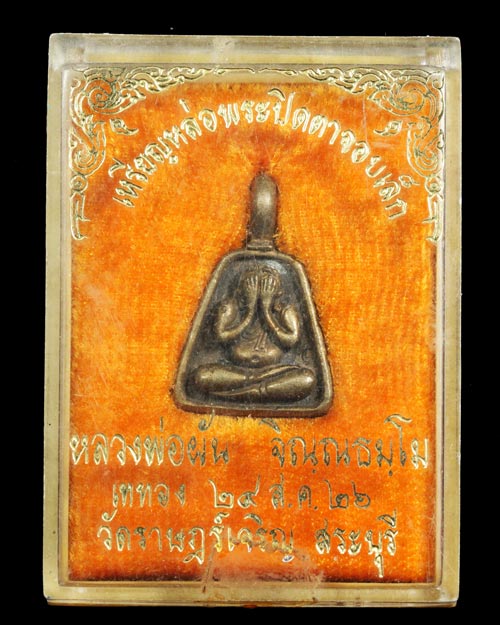 เหรียญหล่อพระปิดตาจอบเล็ก
หลวงพ่อผัน จิณฺณธมฺโม
เททอง ๒๔ ส.ค. ๒๖
วัดราษฎร์เจริญ สระบุรี